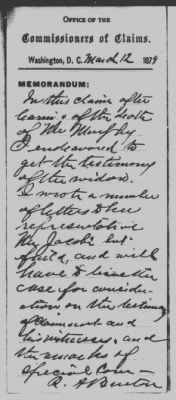 OFFICE OF THE
Commissioners of Claims.
Washington, D. C. March 12 1879
MEMORANDUM:
In this claim after
learning of the death
of Mr Murphy
I endeavored to
get the testimony
of the widow.
I wrote a number
of letters to her
representative
Mr Jacobs but
failed, and will
have to the
case for consider-
ation on the testimony
of claimant and
his witnesses, and
the remarks of
Special Com